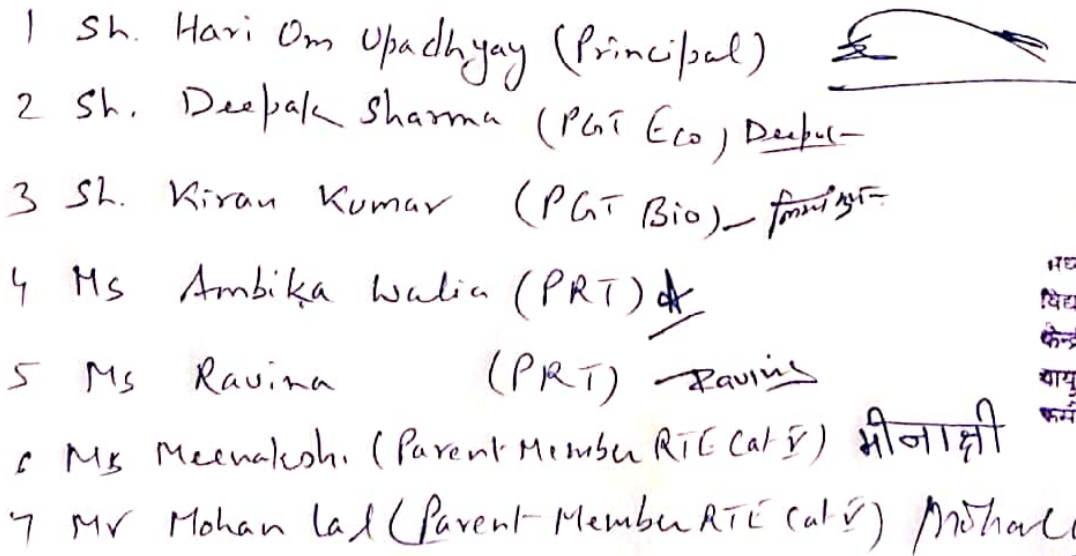 1 Sh. Hari Om Upadhyay (Principal)
2 Sh. Deepak Sharma (PGT Eco) Deepak
3 Sh. Kiran Kumar (PGT Bio)
4 Ms Ambika Walia (PRT)
5 Ms Ravina (PRT) Ravina
6 Ms Meenakshi (Parent Member RTE Cat V) मीनाक्षी
7 Mr Mohan Lal (Parent-Member RTE Cat V) Mohan